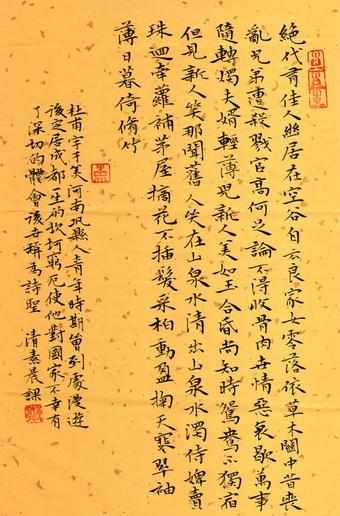 絕代有佳人幽居在空谷自云良家女零落依草木關中昔喪
亂兄弟遭殺戮官高何足論不得收骨肉世情惡衰歇萬事
隨轉燭夫婿輕薄兒新人美如玉合昏尚知時鴛鴦不獨宿
但見新人笑那聞舊人哭在山泉水清出山泉水濁侍婢賣
珠迴牽蘿補茅屋摘花不插髮采柏動盈掬天寒翠袖
薄日暮倚脩竹
杜甫字子美河南鞏縣人青年時期曾到處漫遊
後定居成都一生的坎坷窮厄使他對國家不幸有
了深切的體會後世稱為詩聖 清素晨課